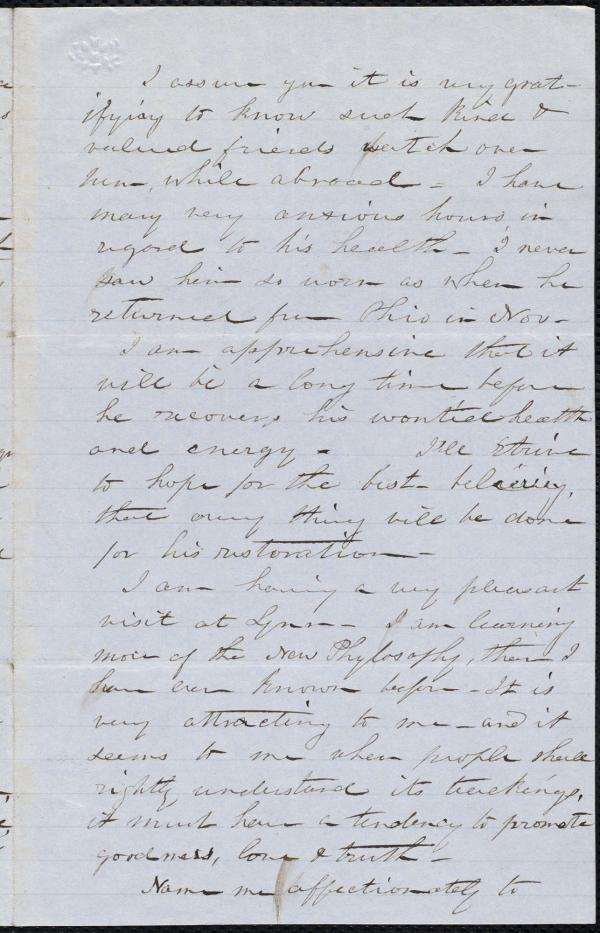 I assure you it is very grat-
ifying to know such kind &
valued friends watch over
him, while abroad - I have
many very anxious hours in
regard to his health - I never
saw him so worn as when he
returned from Ohio in Nov -
I am apprehensive that it
will be a long time before
he recovers his wonted health
and energy - I'll strive
to hope for the best - believing,
that every thing will be done
for his restoration -
I am having a very pleasant
visit at Lynn - I am learning
more of the New Phylosophy, then I
have ever known before - It is
very attracting to me - and it
seems to me when people shall
rightly understand its teachings,
it must have a tendency to promote
goodness, love & truth -
Name me affectionately to